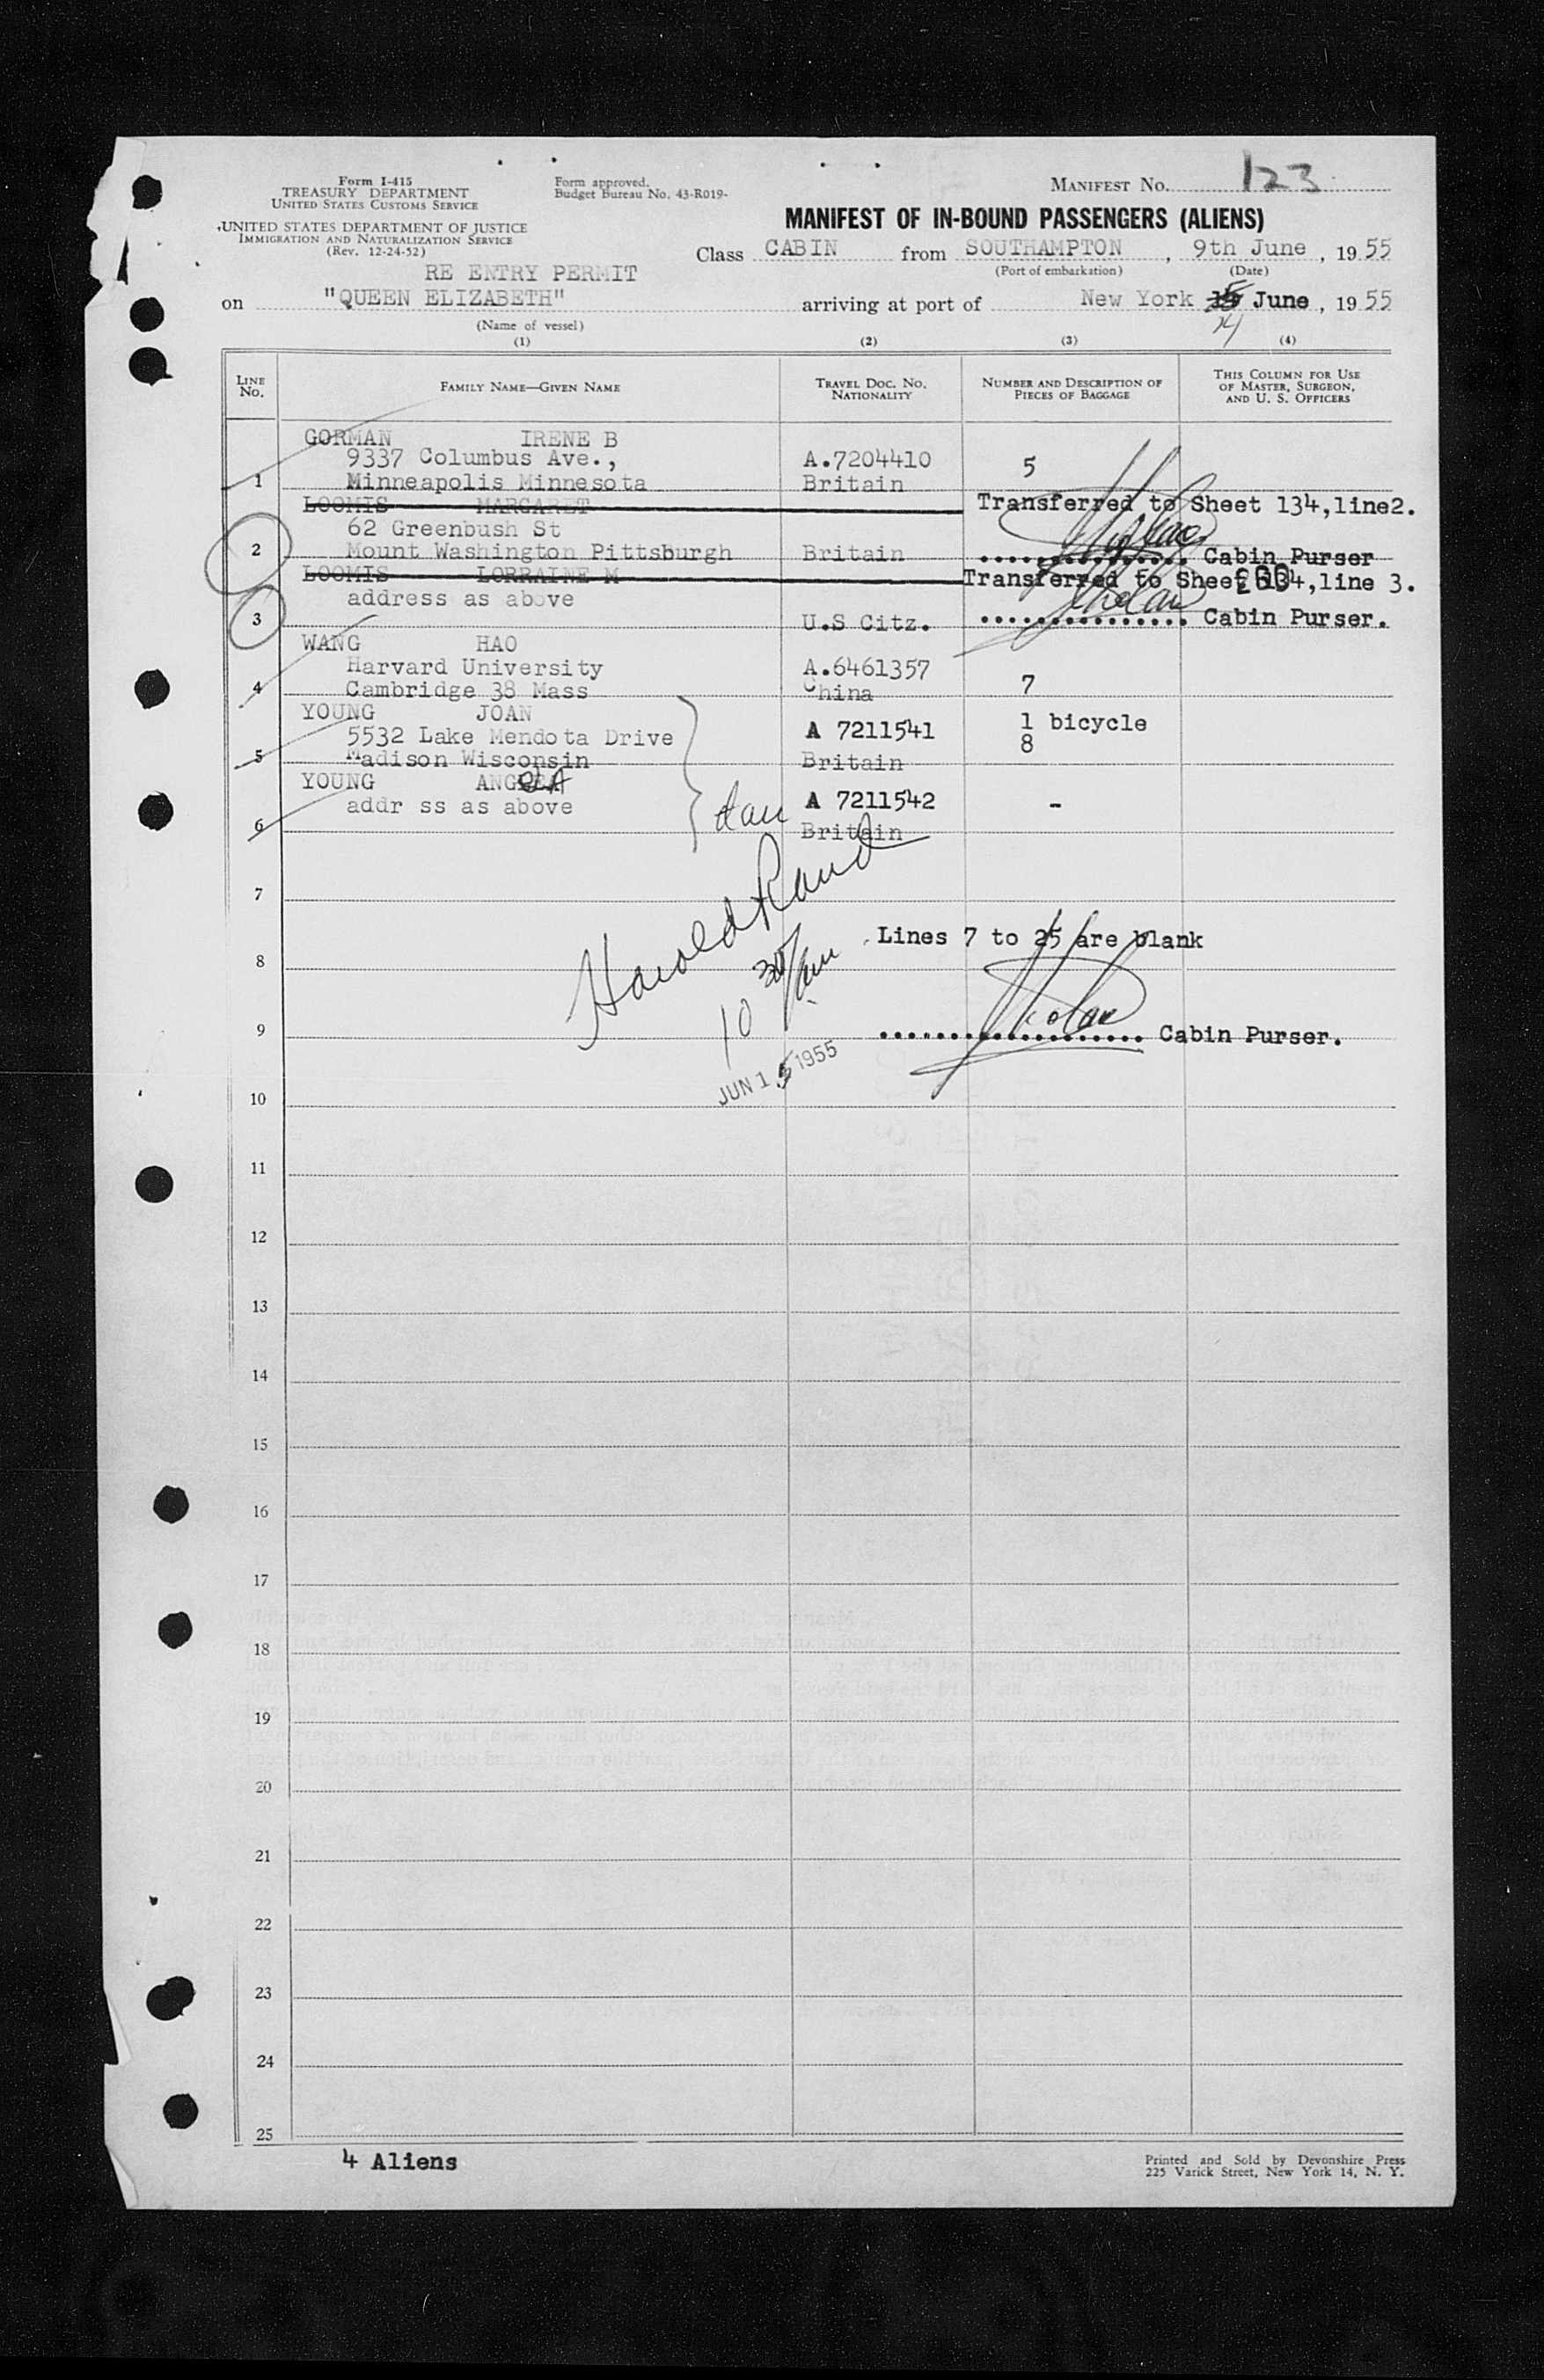 Form I-415
TREASURY DEPARTMENT
UNITED STATES CUSTOMS SERVICE
Form approved.
Budget Bureau No. 43-R019-
MANIFEST No. 123
UNITED STATES DEPARTMENT OF JUSTICE
IMMIGRATION AND NATURALIZATION SERVICE
(Rev. 12-24-52)
MANIFEST OF IN-BOUND PASSENGERS (ALIENS)
Class CABIN from SOUTHAMPTON, 9th June, 1955
(Port of embarkation) (Date)
RE ENTRY PERMIT
on "QUEEN ELIZABETH" arriving at port of New York June, 1955
14
(Name of vessel)
(1) (2) (3) (4)
LINE No. FAMILY NAME—GIVEN NAME TRAVEL DOC. No. NATIONALITY NUMBER AND DESCRIPTION OF PIECES OF BAGGAGE THIS COLUMN FOR USE OF MASTER, SURGEON, AND U. S. OFFICERS
GORMAN IRENE B
9337 Columbus Ave., A.7204410 5
1 Minneapolis Minnesota Britain
LOOMIS MARGARET Transferred to Sheet 134,line2.
62 Greenbush St
2 Mount Washington Pittsburgh Britain Cabin Purser
LOOMIS LORRAINE M Transferred to Sheet 134,line 3.
address as above
3 U.S Citz. Cabin Purser.
WANG HAO
Harvard University A.6461357
4 Cambridge 38 Mass China 7
YOUNG JOAN
5532 Lake Mendota Drive A 7211541 1 bicycle
8
5 Madison Wisconsin Britain
YOUNG ANGELA
addr ss as above A 7211542 -
6 Britain
7
Harold Rand
Lines 7 to 25 are blank
8
10 30/am
9 Cabin Purser.
JUN 15 1955
10
11
12
13
14
15
16
17
18
19
20
21
22
23
24
25
4 Aliens
Printed and Sold by Devonshire Press
225 Varick Street, New York 14, N. Y.